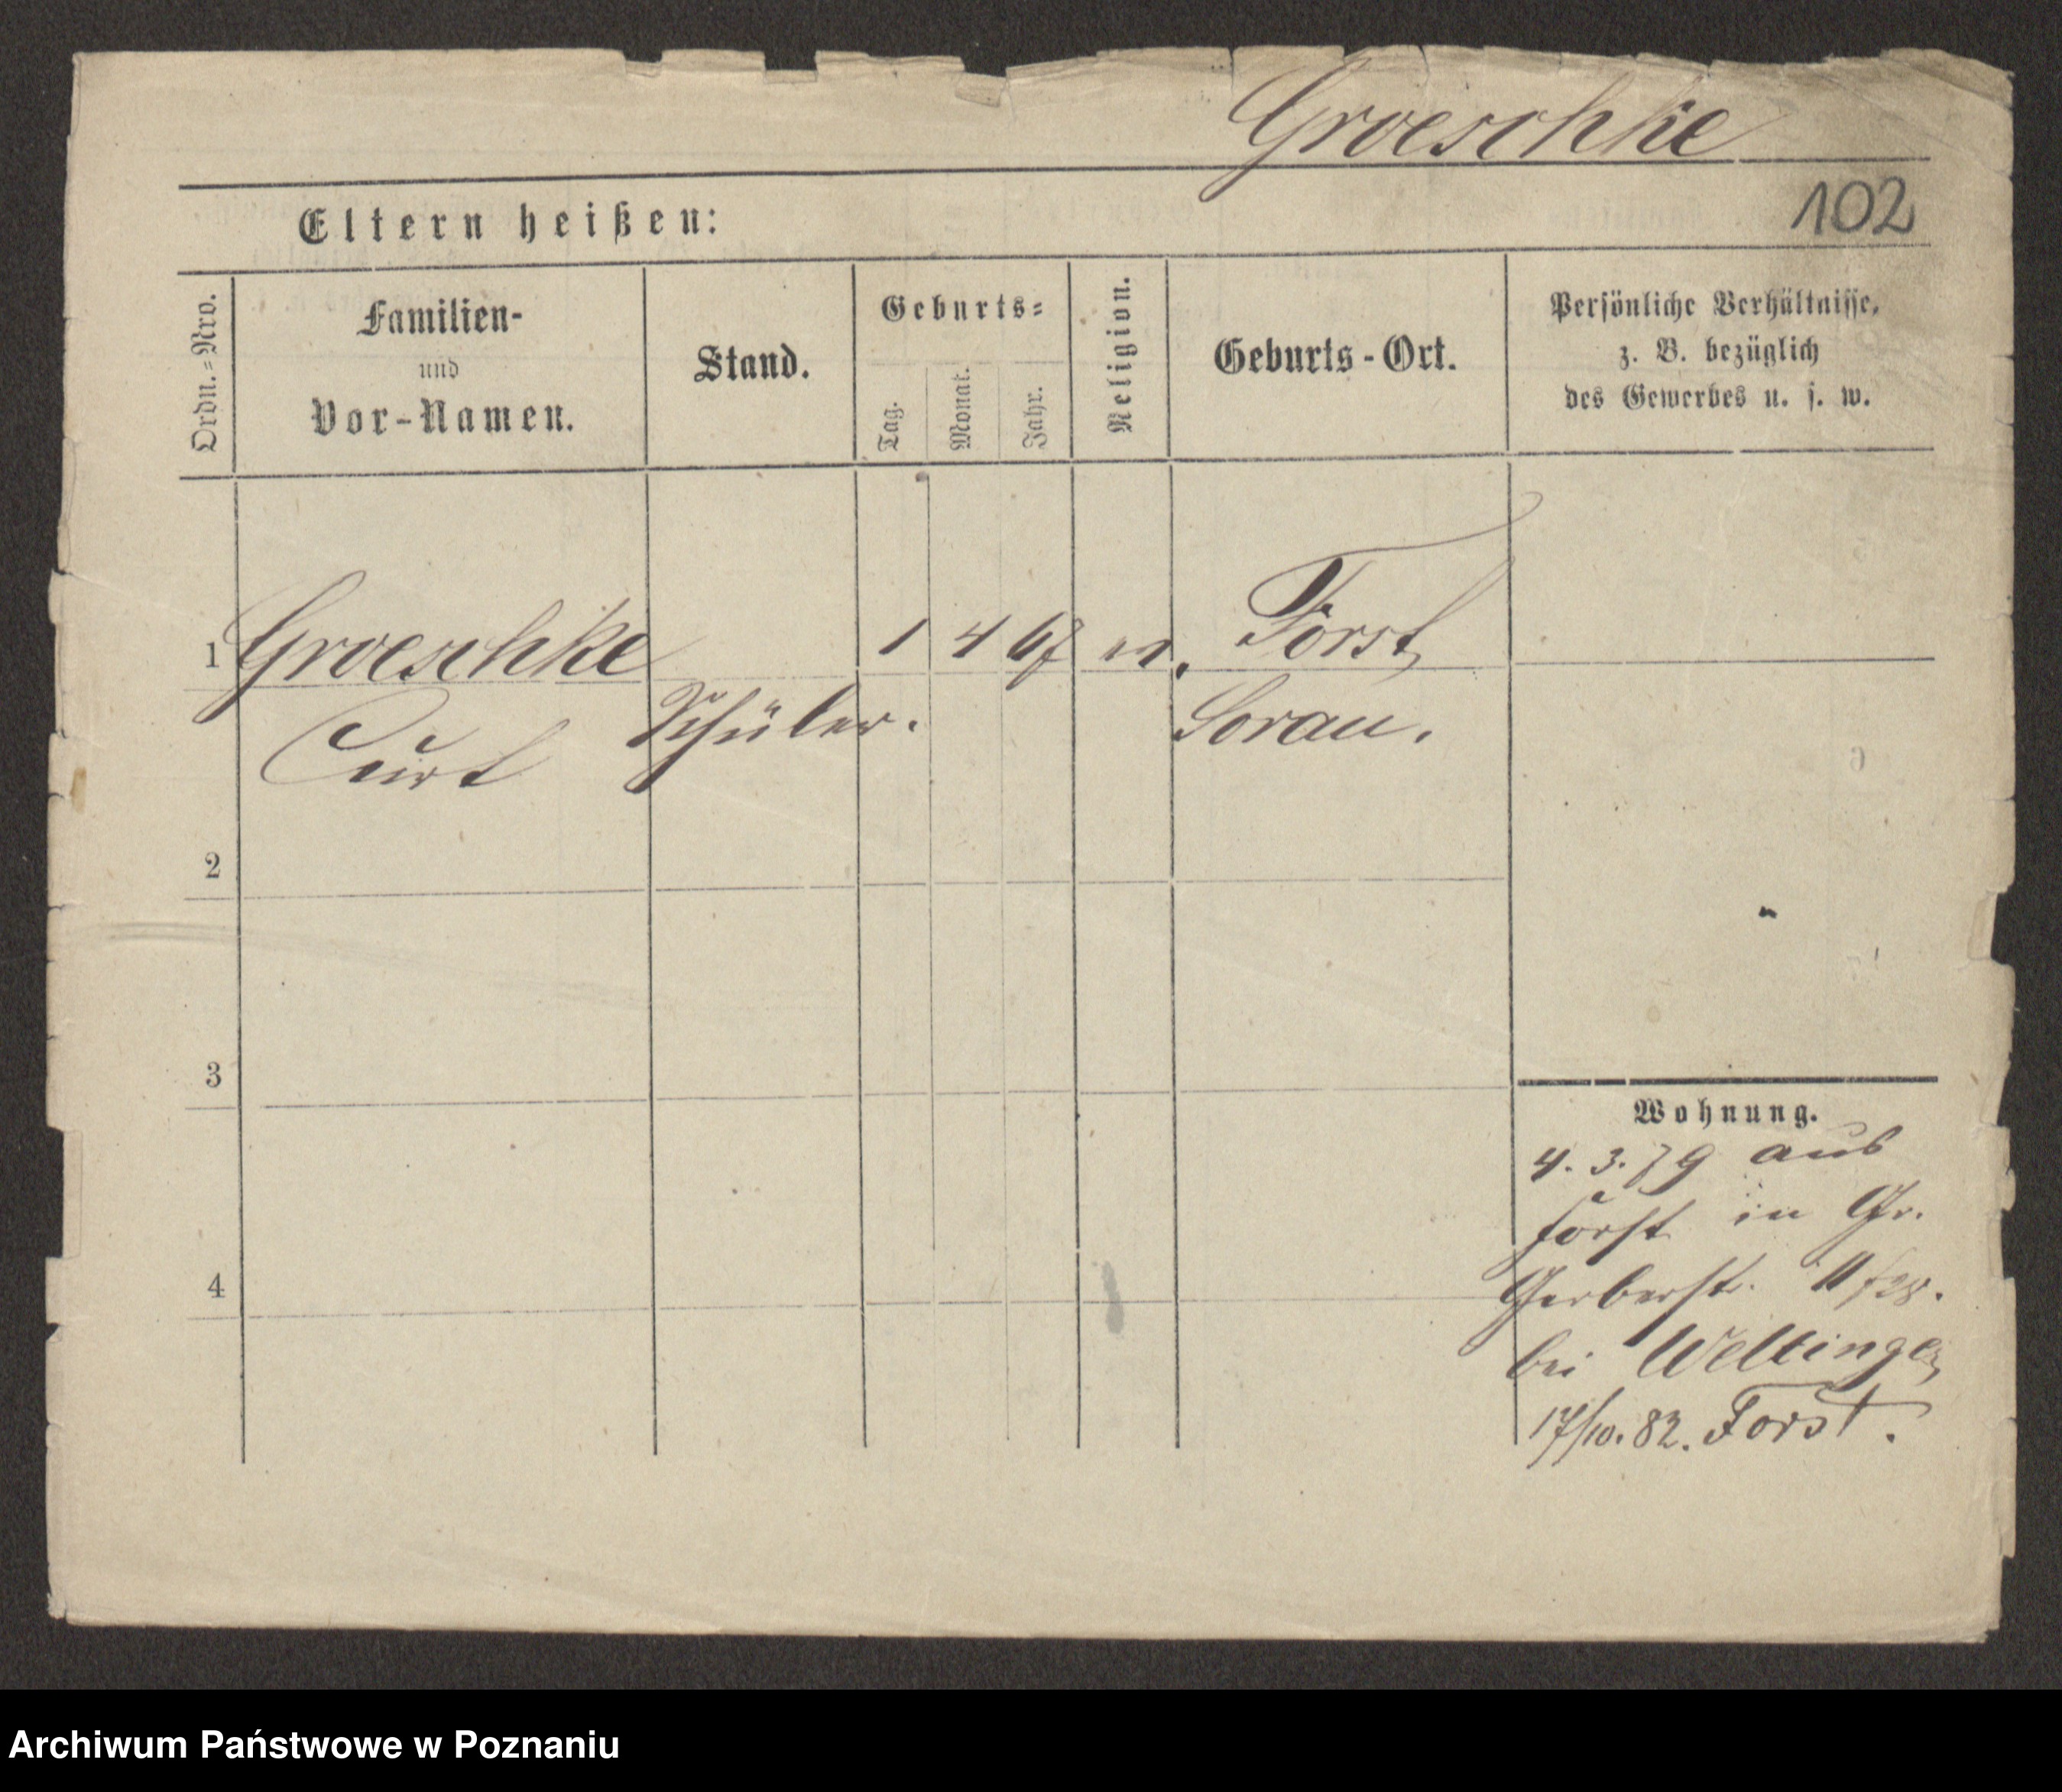 Groeschke
102
Eltern heißen:
Ordn.=Nro.
Familien-
und
Vor-Namen.
Stand.
Geburts=
Tag.
Monat.
Jahr.
Religion.
Geburts-Ort.
Persönliche Verhältnisse,
z. B. bezüglich
des Gewerbes u. s. w.
1 Groeschke 1 4 67 ev. Forst
Curt Schüler. Sorau.
2
3
4
Wohnung.
4. 3. 79 aus
Forst in Gr.
Gerberst. 11
bei Weltinger
17/10. 82. Forst.
Archiwum Państwowe w Poznaniu